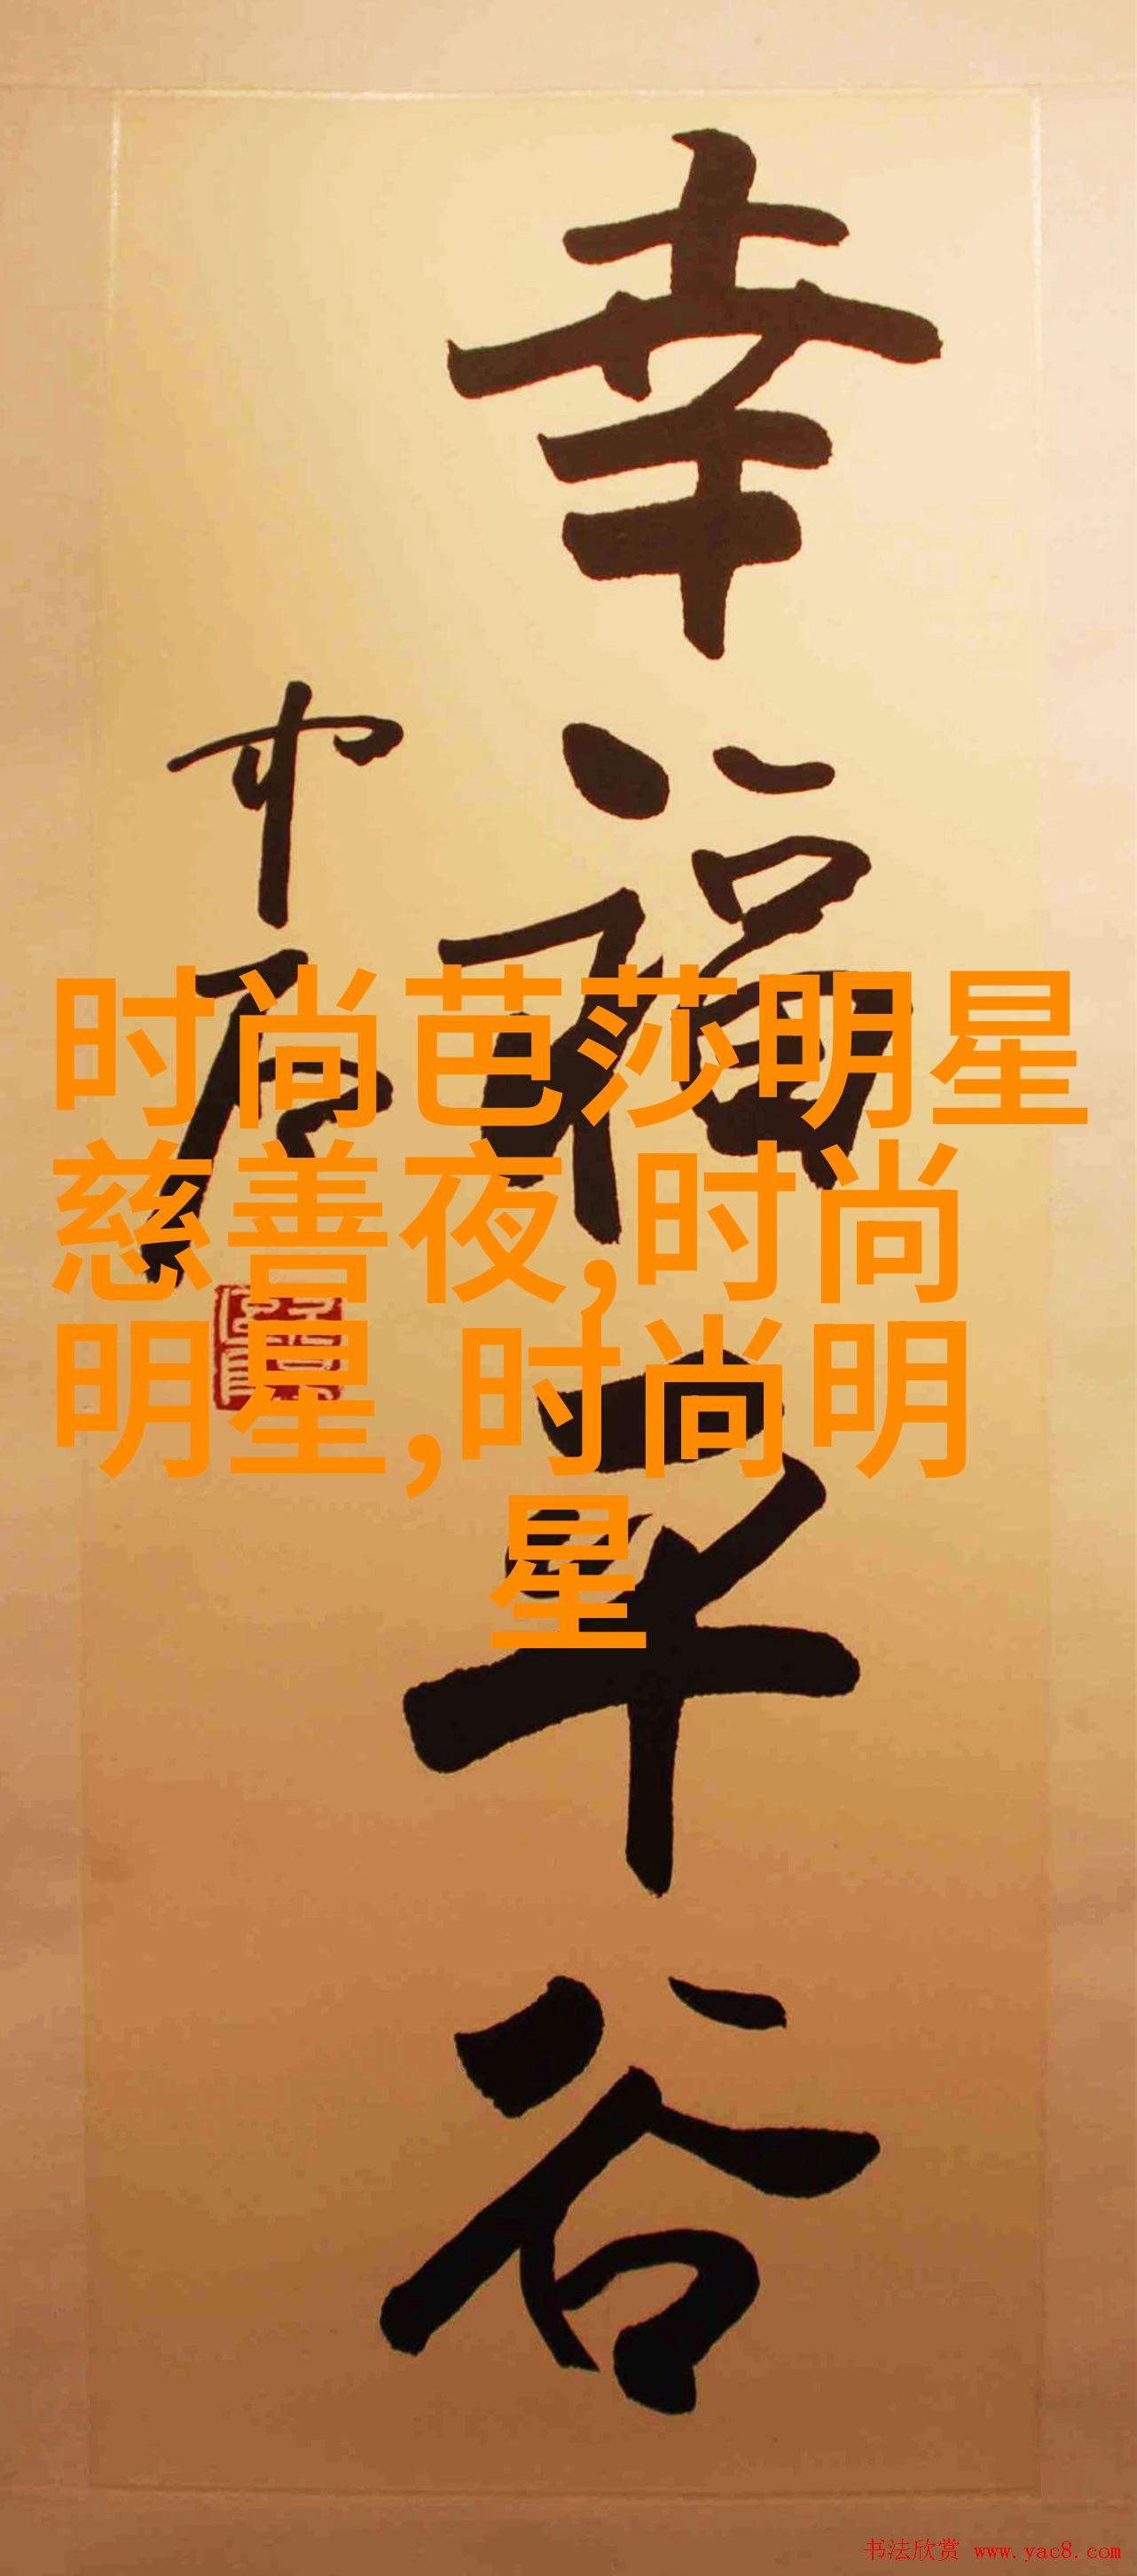 幸福平谷
时尚芭莎明星
慈善夜,时尚
明星,时尚明
星
书法欣赏 www.yac8.com